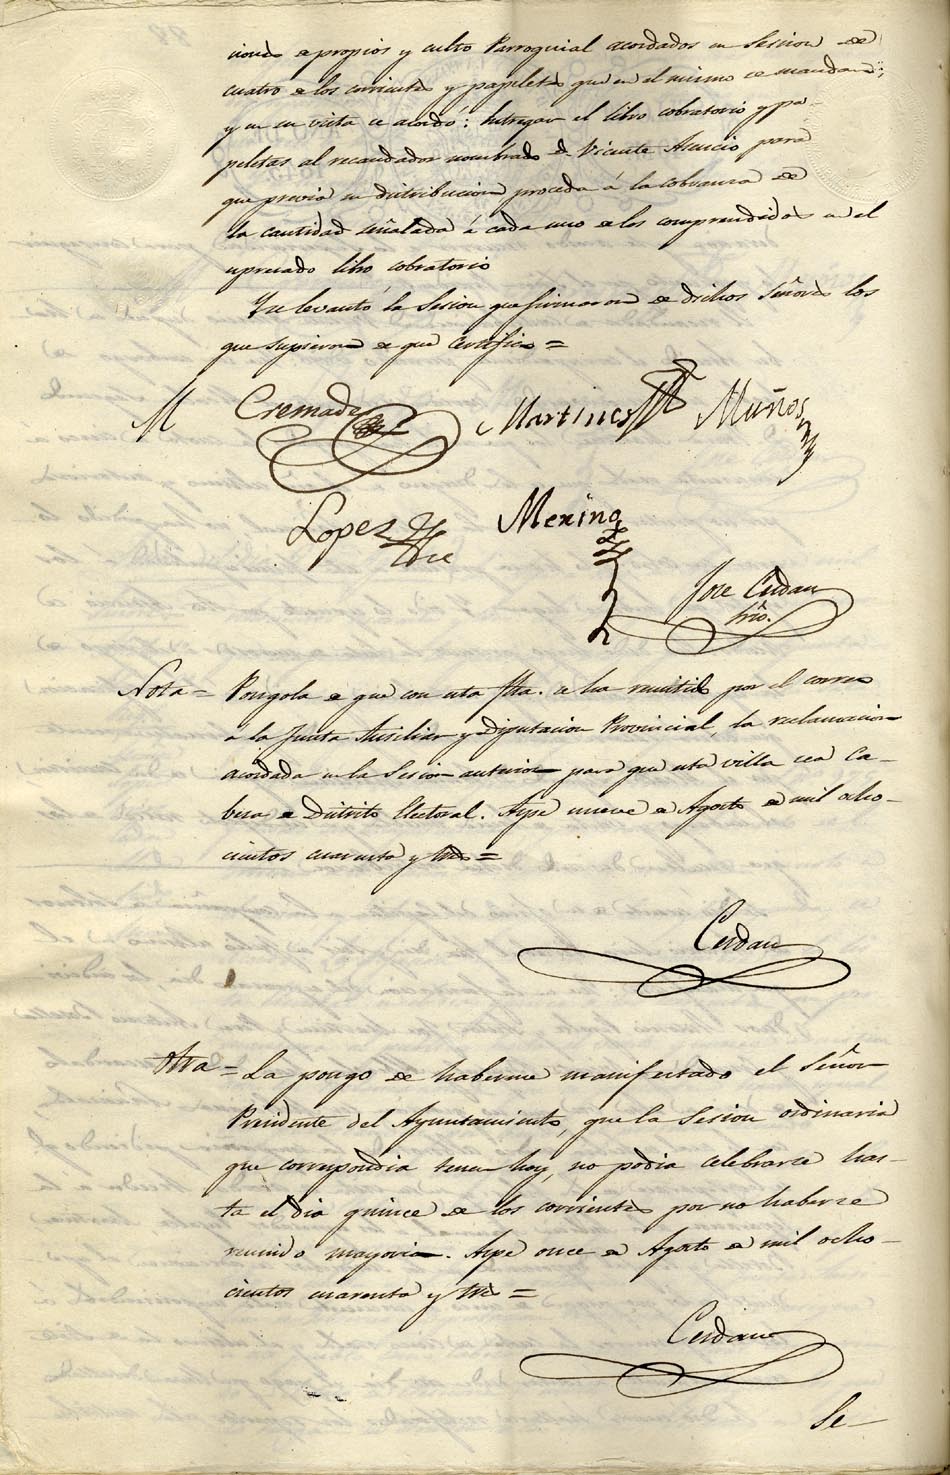 ciones de propios y culto Parroquial acordados en Sesion de
cuatro de los corrientes y papeletas que en el mismo se mandan;
y en su vista se acordó: Entregar el libro cobratorio y pa-
peletas al recaudador nombrado D. Vicente Asencio para
que previa su distribucion proceda á la cobranza de
la cantidad señalada á cada uno de los comprendidos en el
espresado libro cobratorio
Y se levantó la Sesion que firmaron de dichos Señores los
que supieron de que Certifico =
M Cremades Martines Muños
Lopez Merino
Jose Cerdan
Srio.
Nota = Pongola de que con esta fha. se ha remitido por el correo
á la Junta Ausiliar y Diputacion Provincial, la reclamacion
acordada en la Sesion anterior para que esta villa sea Ca-
beza de Distrito Electoral. Aspe nueve de Agosto de mil ocho-
cientos cuarenta y tres =
Cerdan
Otra = La pongo de haberme manifestado el Señor
Presidente del Ayuntamiento, que la Sesion ordinaria
que correspondia tener hoy, no podia celebrarse has-
ta el dia quince de los corrientes por no haberse
reunido mayoria. Aspe once de Agosto de mil ocho-
cientos cuarenta y tres =
Cerdan
Se-